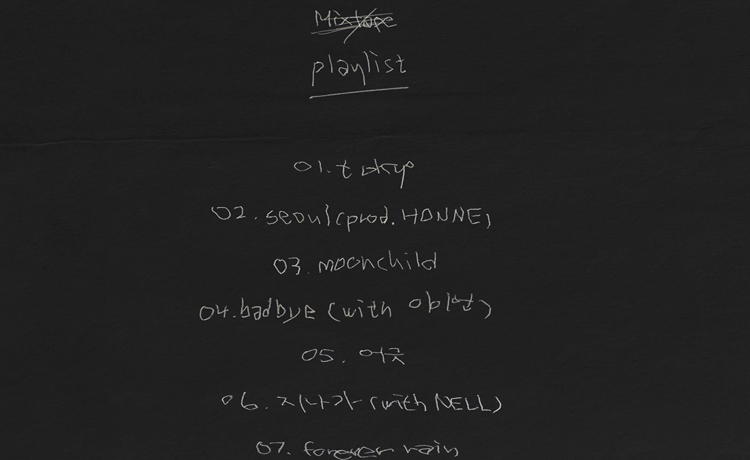 Mixtape
playlist
01. tokyo
02. seoul (prod. HONNE)
03. moonchild
04. badbye (with 이이언)
05. 어긋
06. 지나가 (with NELL)
07. forever rain